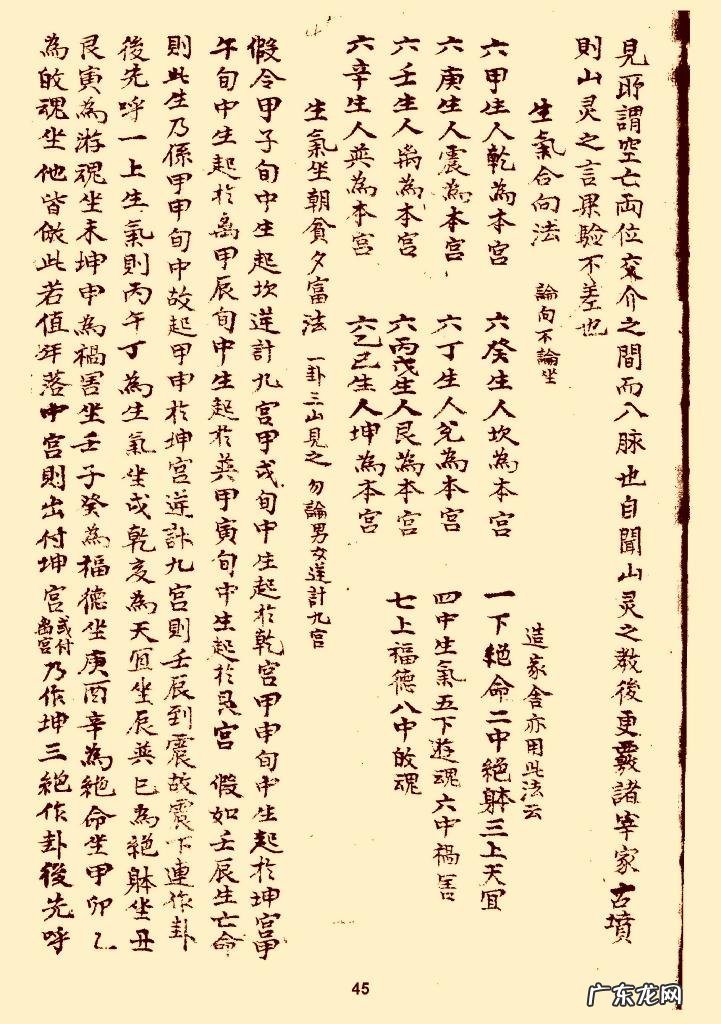 見所謂空亡両位交介之間而入脉也自聞山灵之教後更覈諸宰家古墳
則山灵之言果验不差也
生氣合向法 論向不論坐
造家舍亦用此法云
六甲生人乾為本宮 六癸生人坎為本宮 一下絕命二中絕躰三上天宜
六庚生人震為本宮 六丁生人兌為本宮 四中生氣五下遊魂六中禍害
六壬生人离為本宮 六丙戊生人艮為本宮 七上福德八中㱕魂
六辛生人巽為本宮 六乙己生人坤為本宮
生氣坐朝貧夕富法 一卦三山見之 勿論男女逆計九宮
假令甲子旬中生起坎逆計九宮甲戌旬中生起於乾宮甲申旬中生起於坤宮甲
午旬中生起於离甲辰旬中生起於巽甲寅旬中生起於艮宮 假如壬辰生亡命
則此生乃係甲申旬中故起甲申於坤宮逆計九宮則壬辰到震故震下連作卦
後先呼一上生氣則丙午丁為生氣坐戌乾亥為天宜坐辰巽巳為絕躰坐丑
艮寅為游魂坐未坤申為禍害坐壬子癸為福德坐庚酉辛為絕命坐甲卯乙
為㱕魂坐他皆倣此若值年落中宮則出付坤宮或付离宮乃作坤三絕作卦後先呼
45
广东龙网